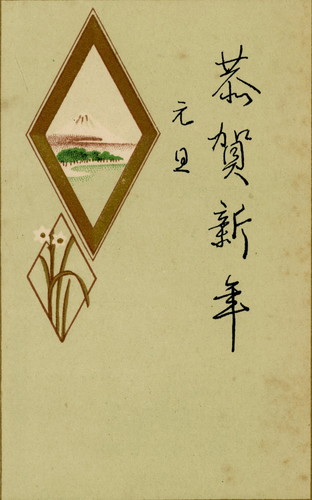 恭賀新年
元旦